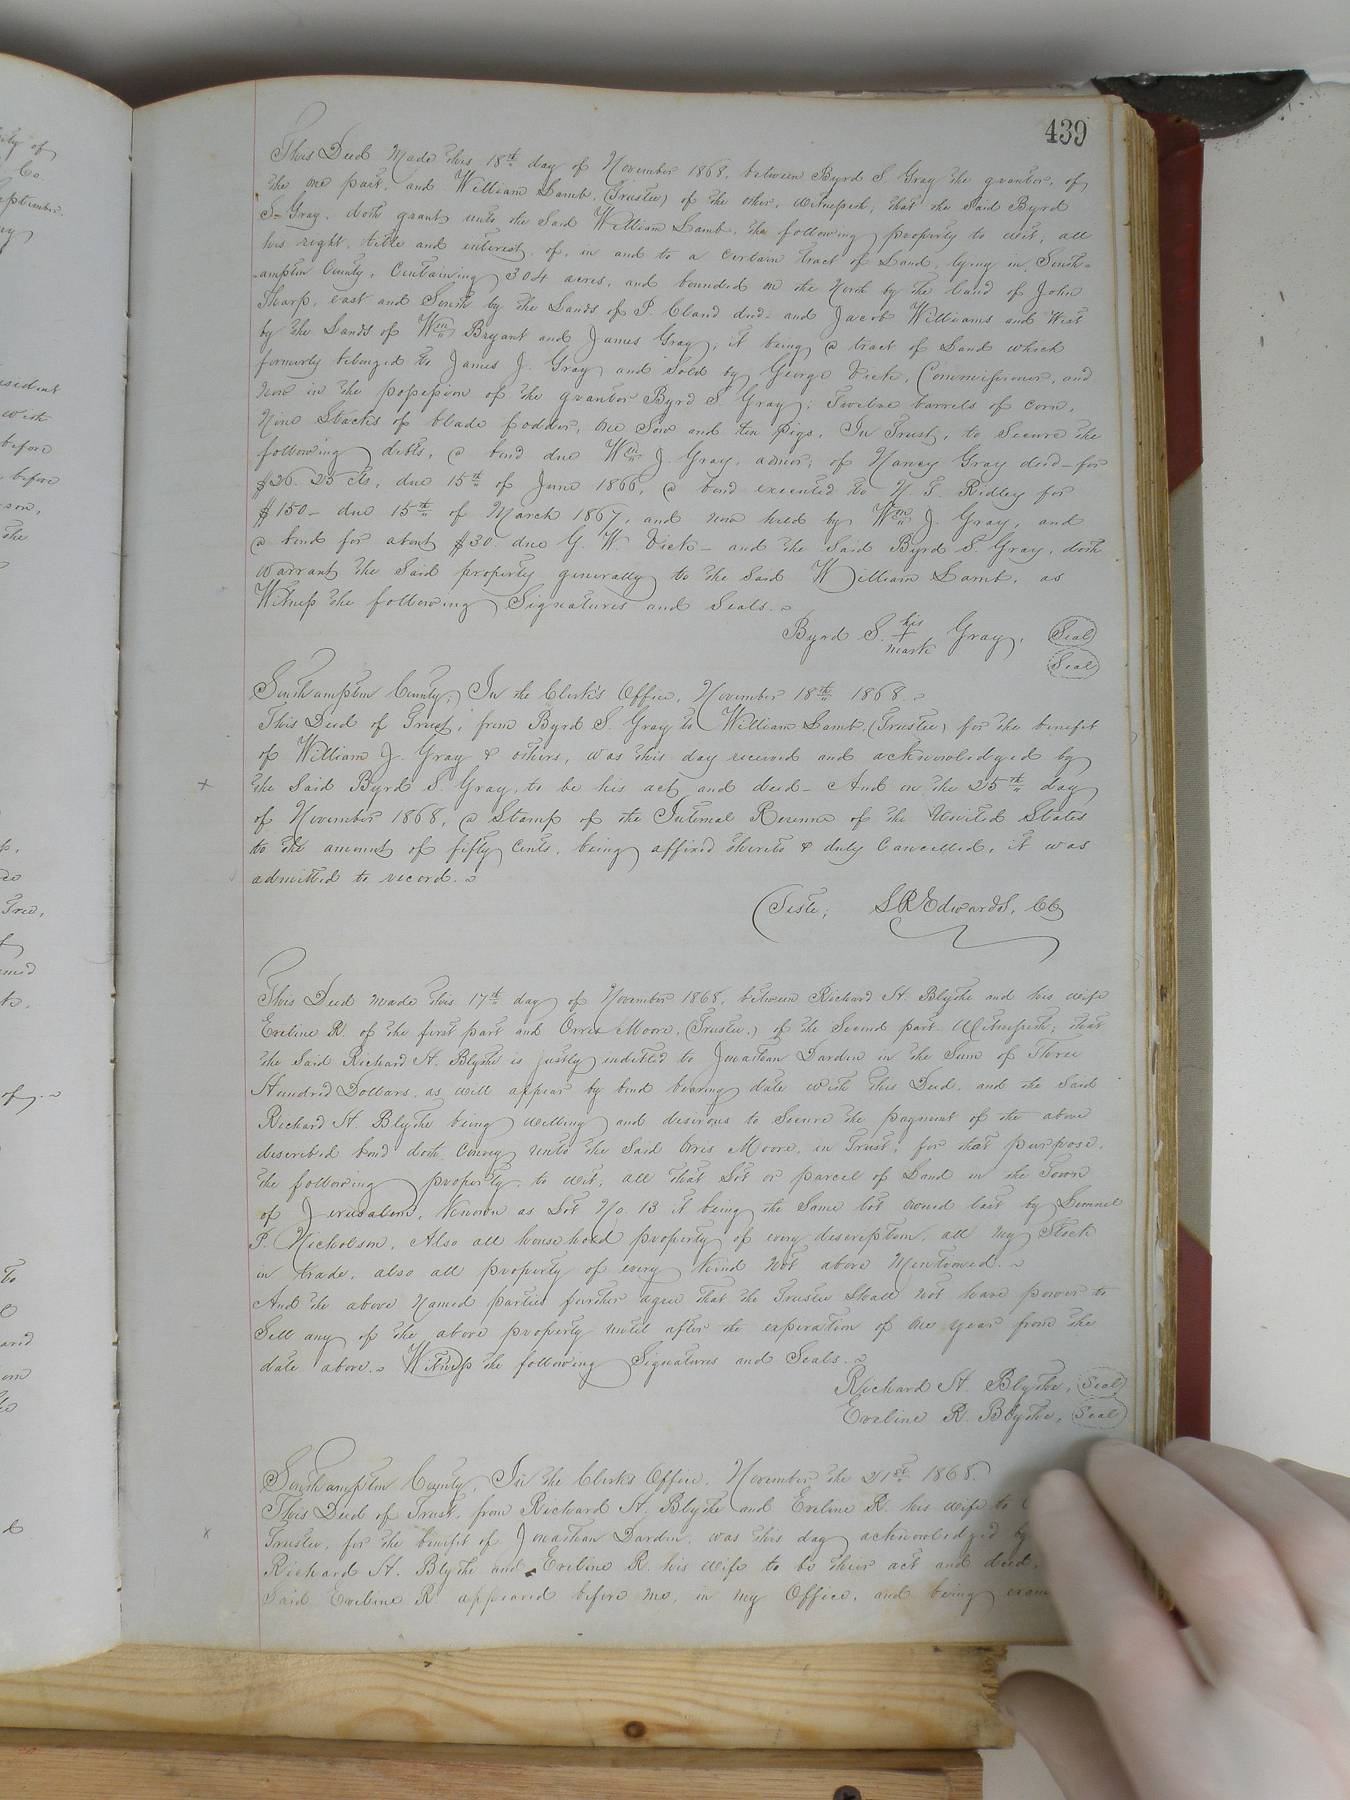 439
This Deed Made this 18th day of November 1868, between Byrd S. Gray the grantor, of
the one part, and William Lamb, (Trustee) of the other, Witnesseth, that the said Byrd
S. Gray, doth grant unto the said William Lamb, the following property to wit, all
his right, title and interest, of, in and to a certain tract of Land, lying in South-
ampton County, Containing 304 acres, and bounded on the North by the land of John
Tharp, east and South by the Lands of P. Bland decd- and Jacob Williams and West
by the Lands of Wm Bryant and James Gray, it being a tract of Land which
formerly belonged to James J. Gray and Sold by George Vick, Commissioner, and
now in the possession of the grantor Byrd S Gray; Twelve barrels of corn,
Nine Stacks of blade fodder, One Sow and ten pigs, In Trust, to Secure the
following debts, a bond due Wm J Gray, admor, of Nancy Gray decd- for
$26. 25 cts, due 15th of June 1866, a bond executed to N. T. Ridley for
$150- due 15th of March 1867, and now held by Wm J. Gray, and
a bond for about $30. due G. W. Vick- and the Said Byrd S. Gray, doth
warrant the Said property generally to the Said William Lamb, as
Witness the following Signatures and Seals.
Byrd S. his + mark Gray, Seal
Seal
Southampton County, In the Clerk's Office, November 18th 1868.
This Deed of Trust, from Byrd S. Gray to William Lamb, (Trustee) for the benefit
of William J. Gray & others, was this day received and acknowledged by
x the Said Byrd S. Gray, to be his act and deed- And on the 25th day
of November 1868, a Stamp of the Internal Revenue of the United States
to the amount of fifty Cents, being affixed thereto & duly Cancelled, it was
admitted to record.
Teste, S R Edwards, CC
This Deed made this 17th day of November 1868, between Richard H. Blythe and his wife
Eveline R. of the first part and Orris Moore, (Trustee,) of the Second part. Witnesseth; that
the Said Richard H. Blythe is justly indebted to Jonathan Darden in the Sum of Three
Hundred Dollars, as will appear by bond bearing date with this Deed, and the Said
Richard H. Blythe being willing and desirous to Secure the payment of the above
described bond doth Convey unto the Said Orris Moore, in Trust, for that purpose,
the following property, to wit, all that Lot or parcel of Land in the Town
of Jerusalem, Known as Lot No. 13 it being the Same lot owned last by Lemuel
P. Nicholson, Also all household property of every description, all my Stock
in trade, also all property of every kind not above Mentioned.
And the above Named parties further agree that the Trustee Shall not have power to
Sell any of the above property until after the expiration of One year from the
date above. Witness the following Signatures and Seals.
Richard H. Blythe, Seal
Eveline R. Blythe, Seal
Southampton County, In the Clerks Office, November the 21st 1868,
This Deed of Trust, from Richard H. Blythe and Eveline R. his wife to
x Trustee, for the benefit of Jonathan Darden, was this day acknowledged by
Richard H. Blythe and Eveline R. his wife to be their act and deed.
Said Eveline R. appeared before me, in my Office, and being